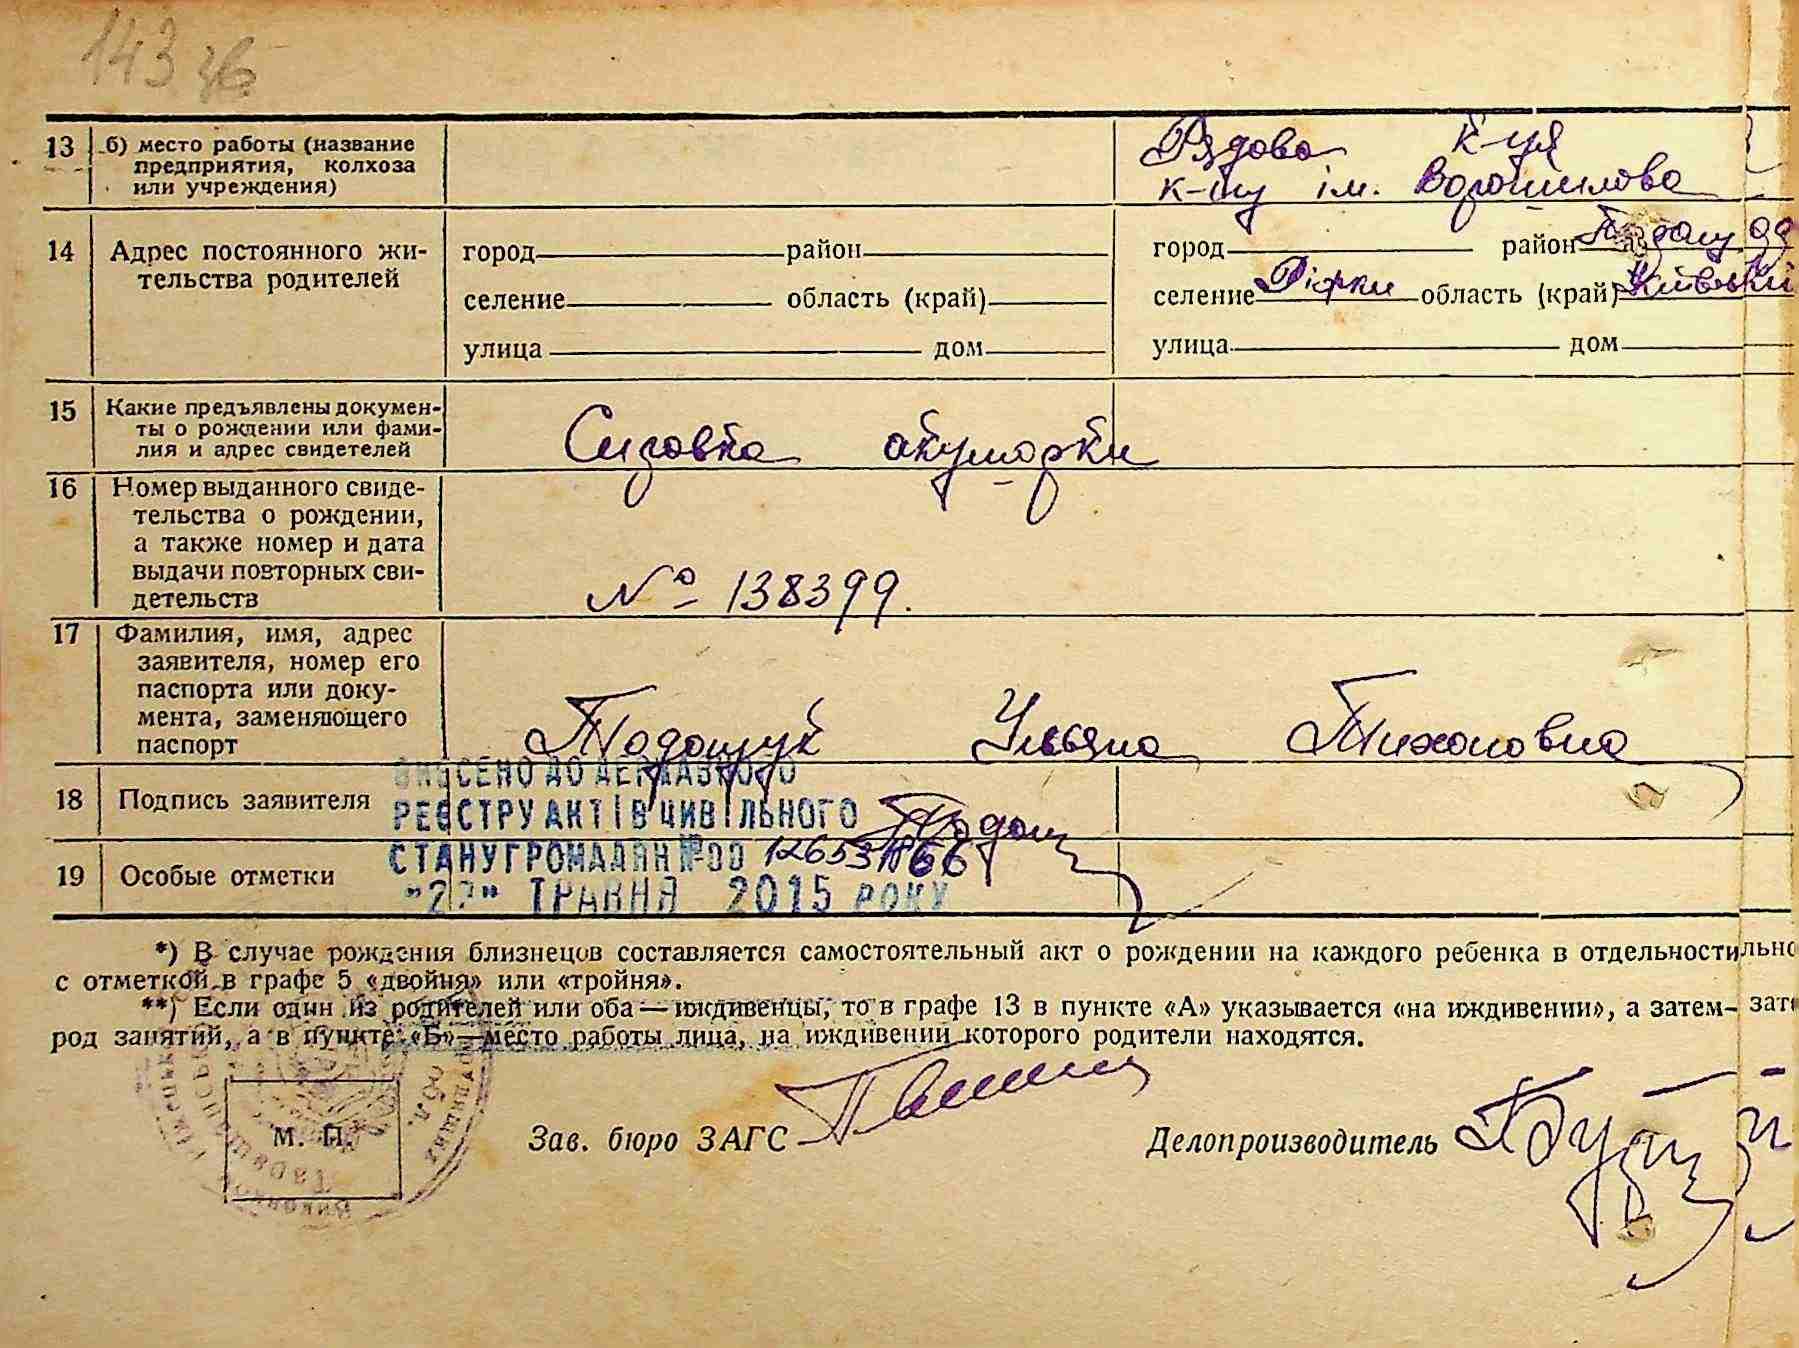 143 зв
13 б) место работы (название предприятия, колхоза или учреждения)
Рядова к-ця
к-пу ім. Ворошилова
14 Адрес постоянного жительства родителей
город район
селение область (край)
улица дом
город район
селение Гірки область (край) Київська
улица дом
15 Какие предъявлены документы о рождении или фамилия и адрес свидетелей
акушорки
16 Номер выданного свидетельства о рождении, а также номер и дата выдачи повторных свидетельств
№ 138399.
17 Фамилия, имя, адрес заявителя, номер его паспорта или документа, заменяющего паспорт
Тодощук Ульяна Тихоновна
18 Подпись заявителя
19 Особые отметки
ВНЕСЕНО ДО ДЕРЖАВНОГО
РЕЄСТРУ АКТІВ ЦИВІЛЬНОГО
СТАНУ ГРОМАДЯН №00
ТРАВНЯ 2015 РОКУ
*) В случае рождения близнецов составляется самостоятельный акт о рождении на каждого ребенка в отдельности
с отметкой в графе 5 «двойня» или «тройня».
**) Если один из родителей или оба — иждивенцы, то в графе 13 в пункте «А» указывается «на иждивении», а затем—
род занятий, а в пункте «Б»—место работы лица, на иждивении которого родители находятся.
М. П.
Зав. бюро ЗАГС
Делопроизводитель